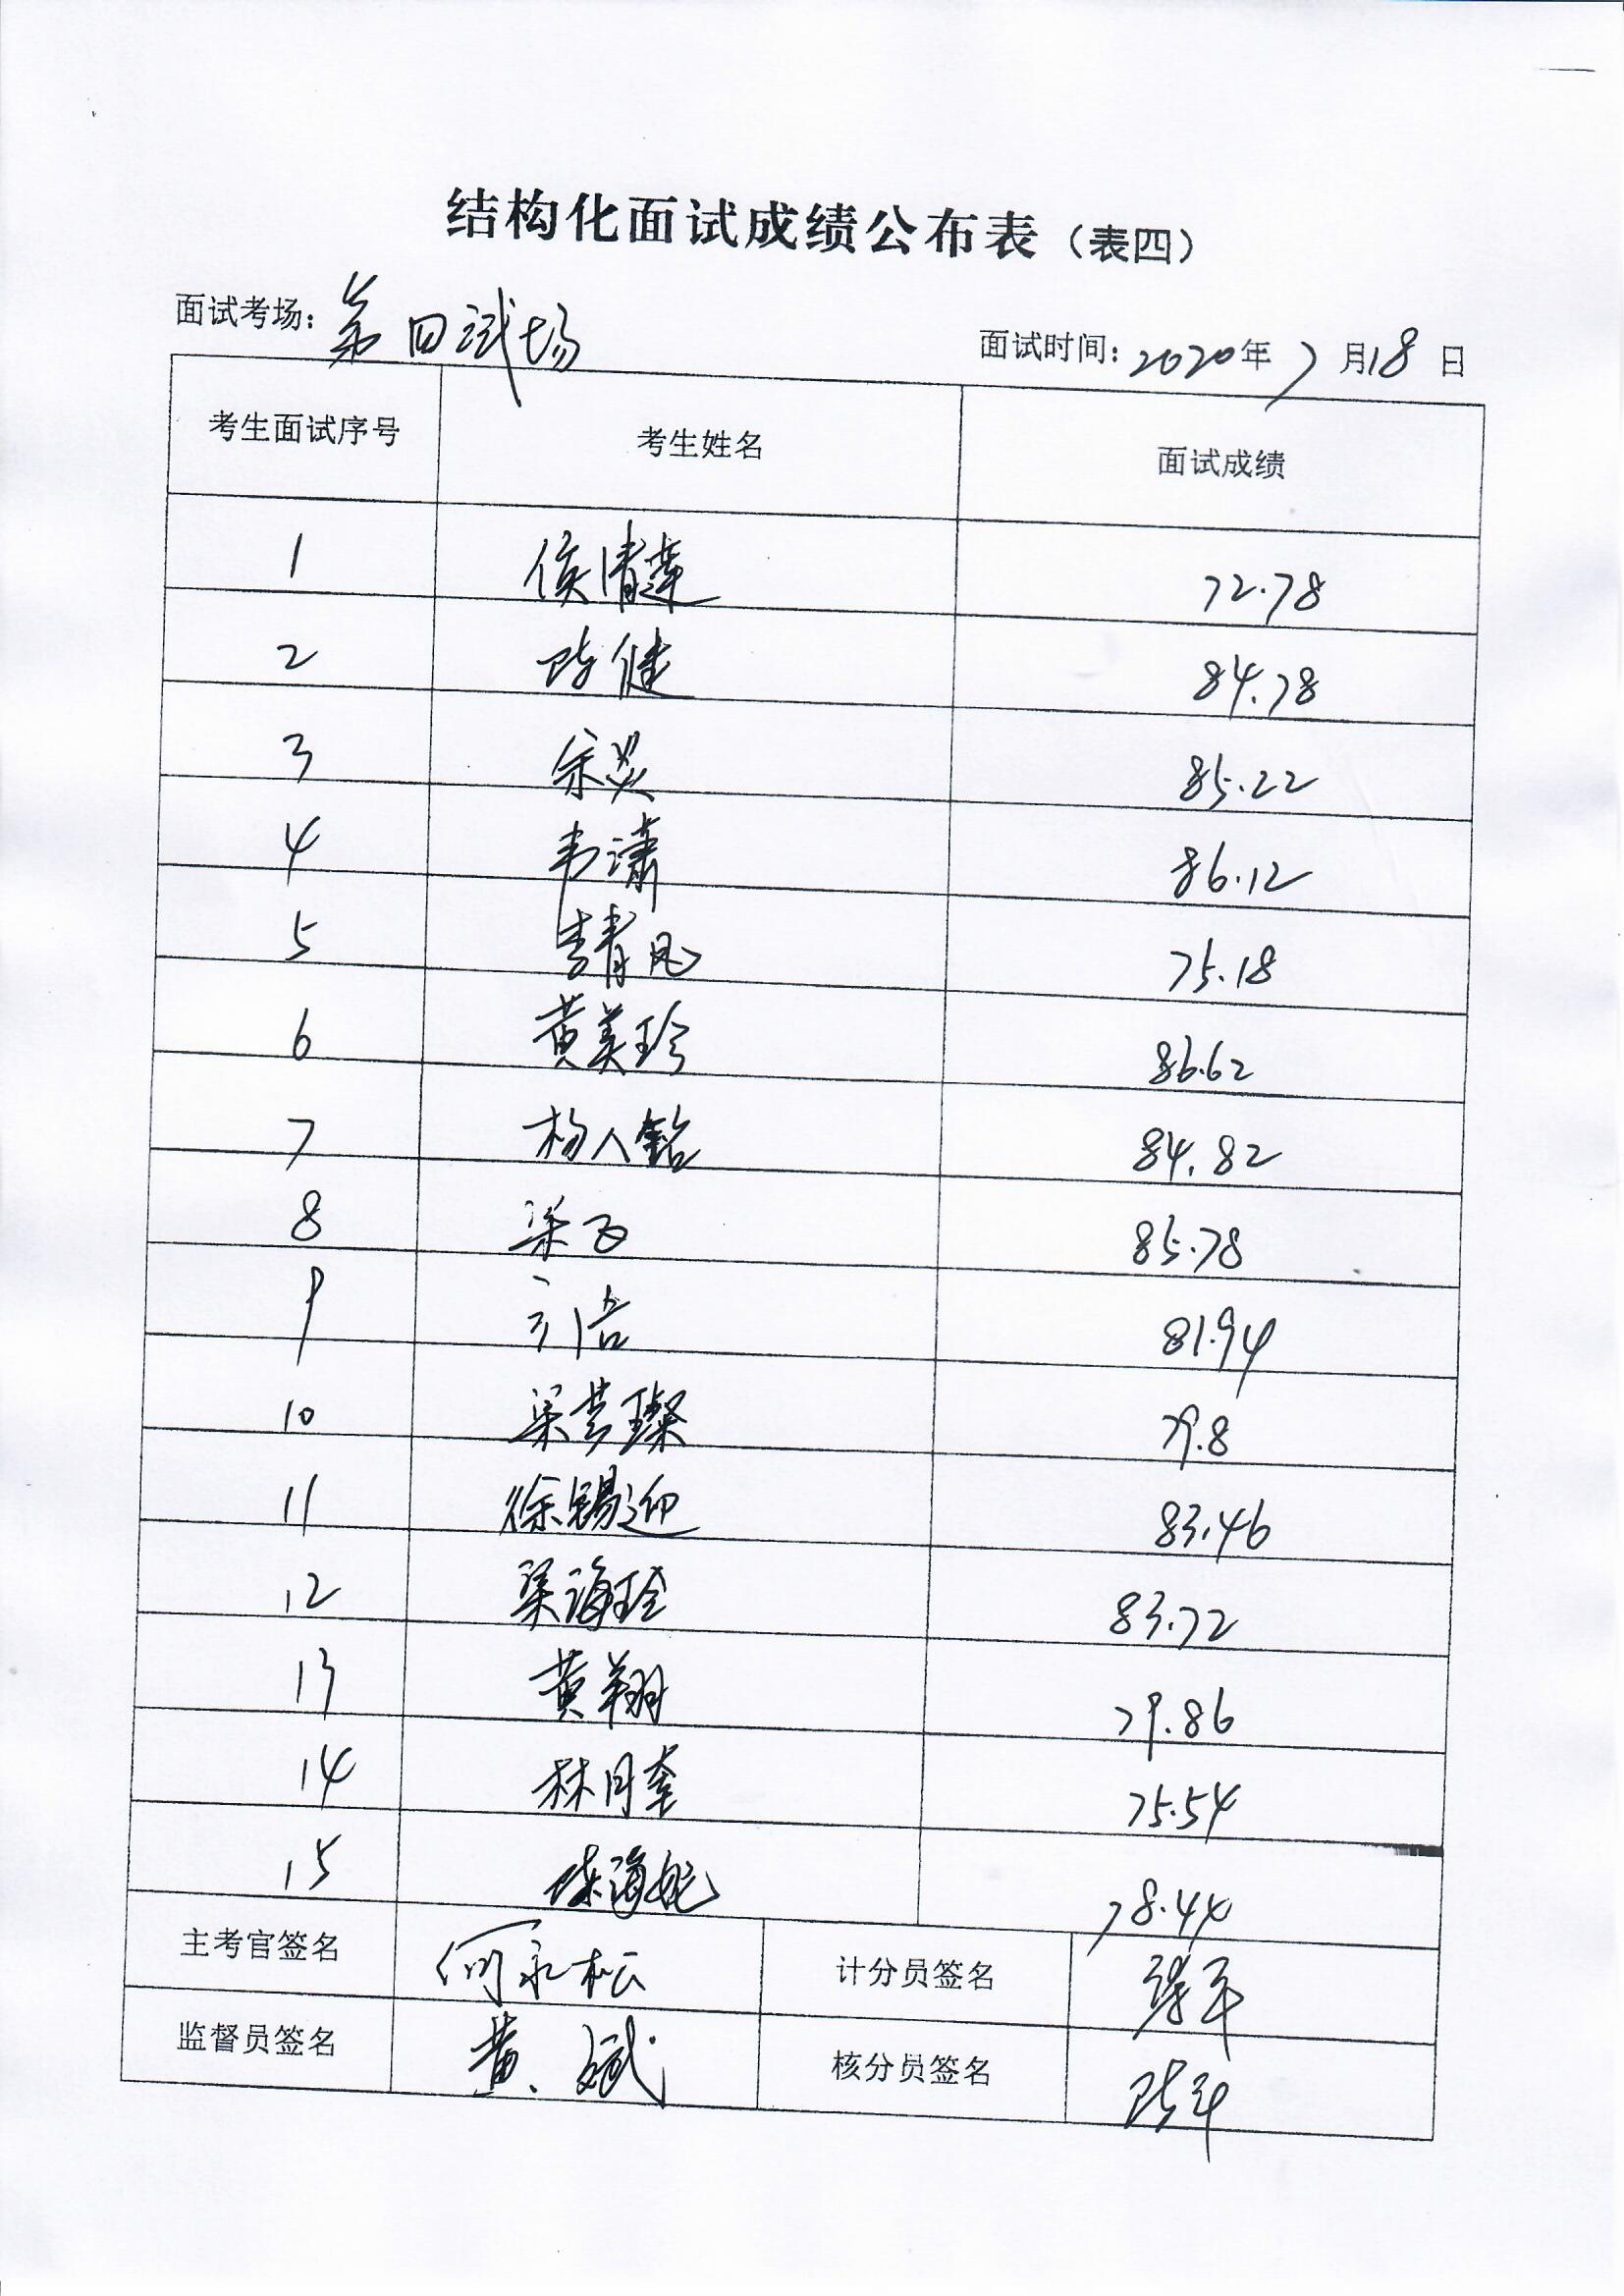 结构化面试成绩公布表（表四）
面试考场：第四试场 面试时间：2020年7月18日
考生面试序号 考生姓名 面试成绩
1 侯清莲 72.78
2 陈健 84.78
3 余炎 85.22
4 韦潇 86.12
5 李青凤 75.18
6 黄美玲 86.62
7 杨人铭 84.82
8 梁 85.78
9 81.94
10 梁梦璨 79.8
11 徐锡迎 83.46
12 梁海玲 83.72
13 黄翔 79.86
14 林月奎 75.54
15 陈海妮 78.44
主考官签名 何永松 计分员签名
监督员签名 黄斌 核分员签名